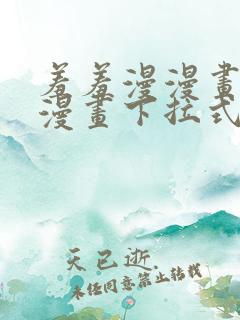 羞羞漫漫畫
漫畫下拉式
天已逝.
未经同意禁止转载